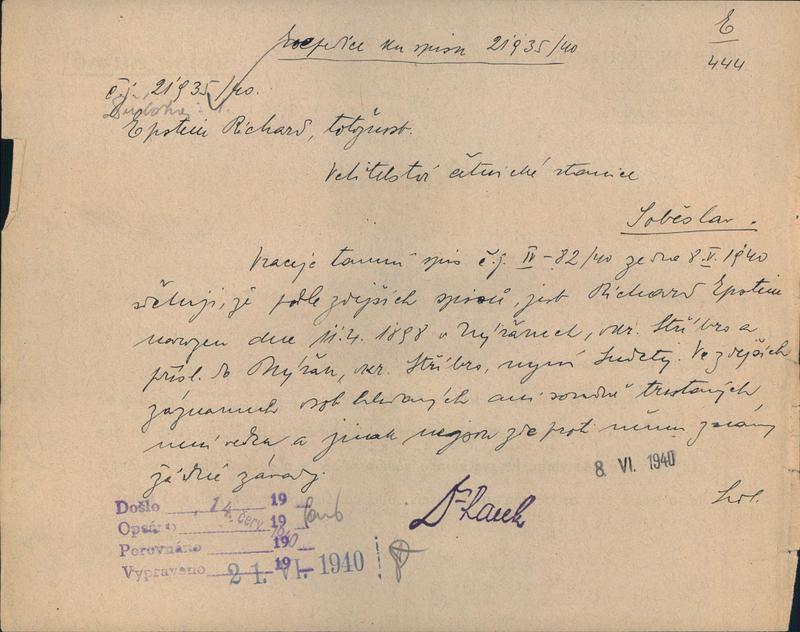 E
444
ku spisu 21935/40
čj. 21935/40.
Epstein Richard, totožnost.
Velitelství četnické stanice
Soběslav.
Vraceje tamní spis č.j. IV-82/40 ze dne 8.V. 1940
sděluji, že podle zdejších spisů, jest Richard Epstein
narozen dne 11.4. 1898 v Nýřanech, okr. Stříbro a
přísl. do Nýřan, okr. Stříbro, nyní Sudety. Ve zdejších
záznamech osob hledaných ani soudně trestaných
není veden a jinak nejsou zde proti němu známy
žádné závady.
8. VI. 1940
Došlo 14. 19
Opsáno 19
Porovnáno 19
Vypraveno 19
21. VI. 1940